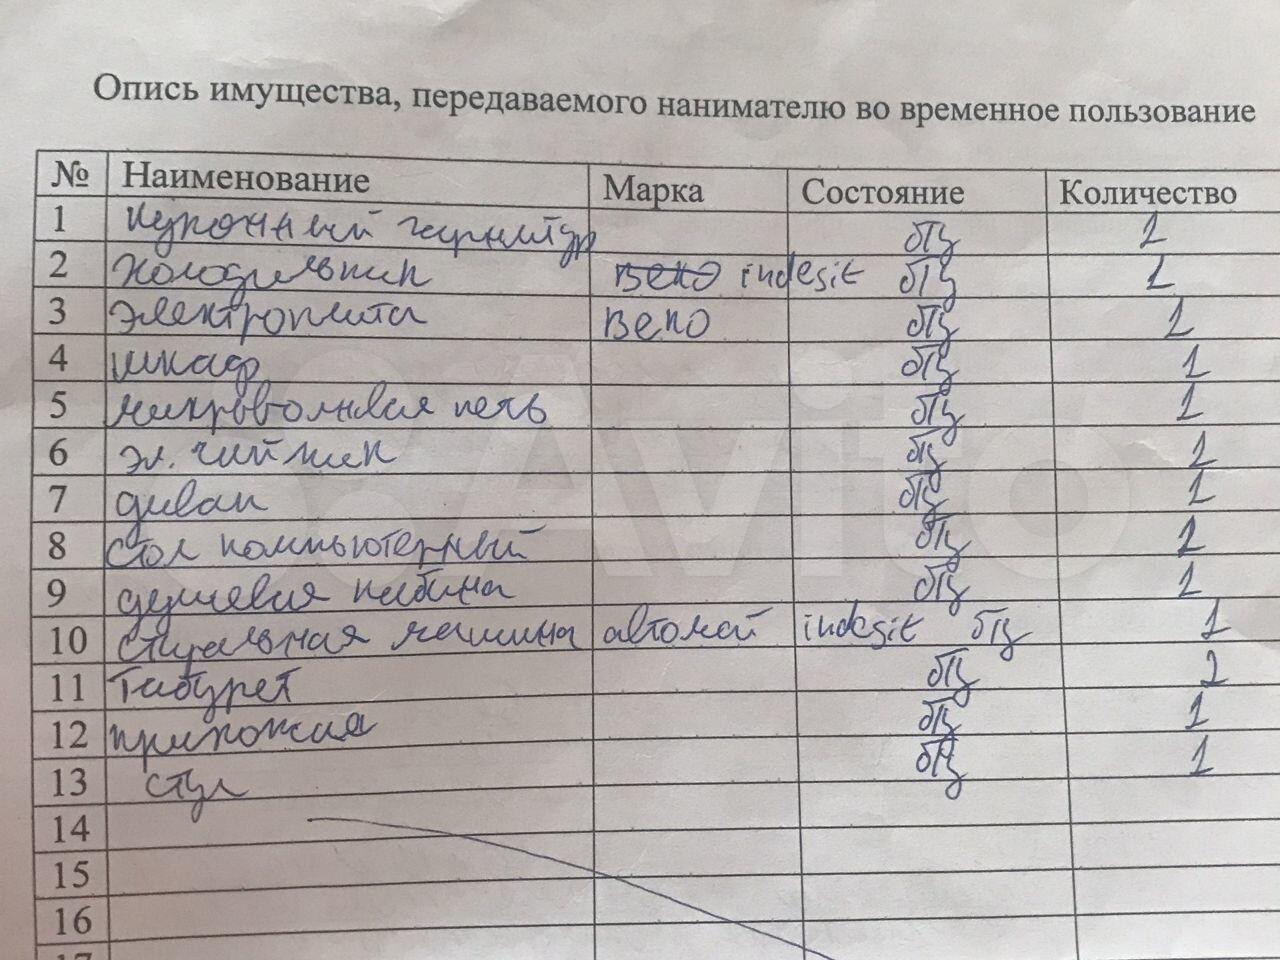 Опись имущества, передаваемого нанимателю во временное пользование
№ Наименование Марка Состояние Количество
1 Кухонный гарнитур б/у 1
2 Холодильник веко indesit б/у 1
3 Электроплита веко б/у 1
4 шкаф б/у 1
5 микроволновая печь б/у 1
6 эл. чайник б/у 1
7 диван б/у 1
8 стол компьютерный б/у 1
9 душевая кабина б/у 1
10 стиральная машина автомат indesit б/у 1
11 Табурет б/у 2
12 прихожая б/у 1
13 стул б/у 1
14
15
16
17
Avito